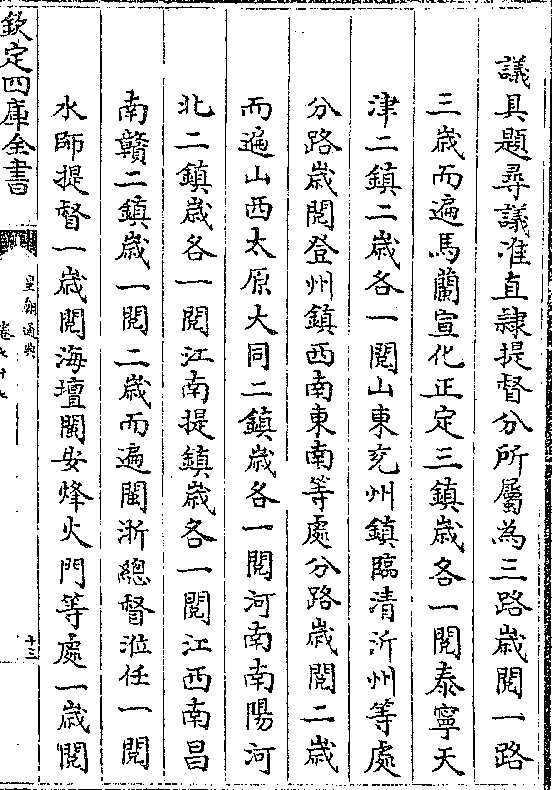 議具題尋議准直隷提督分所屬為三路歲閱一路
三歲而遍馬蘭宣化正定三鎮歲各一閱泰寧天
津二鎮二歲各一閱山東兖州鎮臨清沂州等處
分路歲閱登州鎮西南東南等處分路歲閱二歲
而遍山西太原大同二鎮歲各一閱河南南陽河
北二鎮歲各一閱江南提鎮歲各一閱江西南昌
南贛二鎮歲一閱二歲而遍閩浙總督涖任一閱
水師提督一歲閱海壇閩安烽火門等處一歲閱
欽定四庫全書
皇朝通典
十三